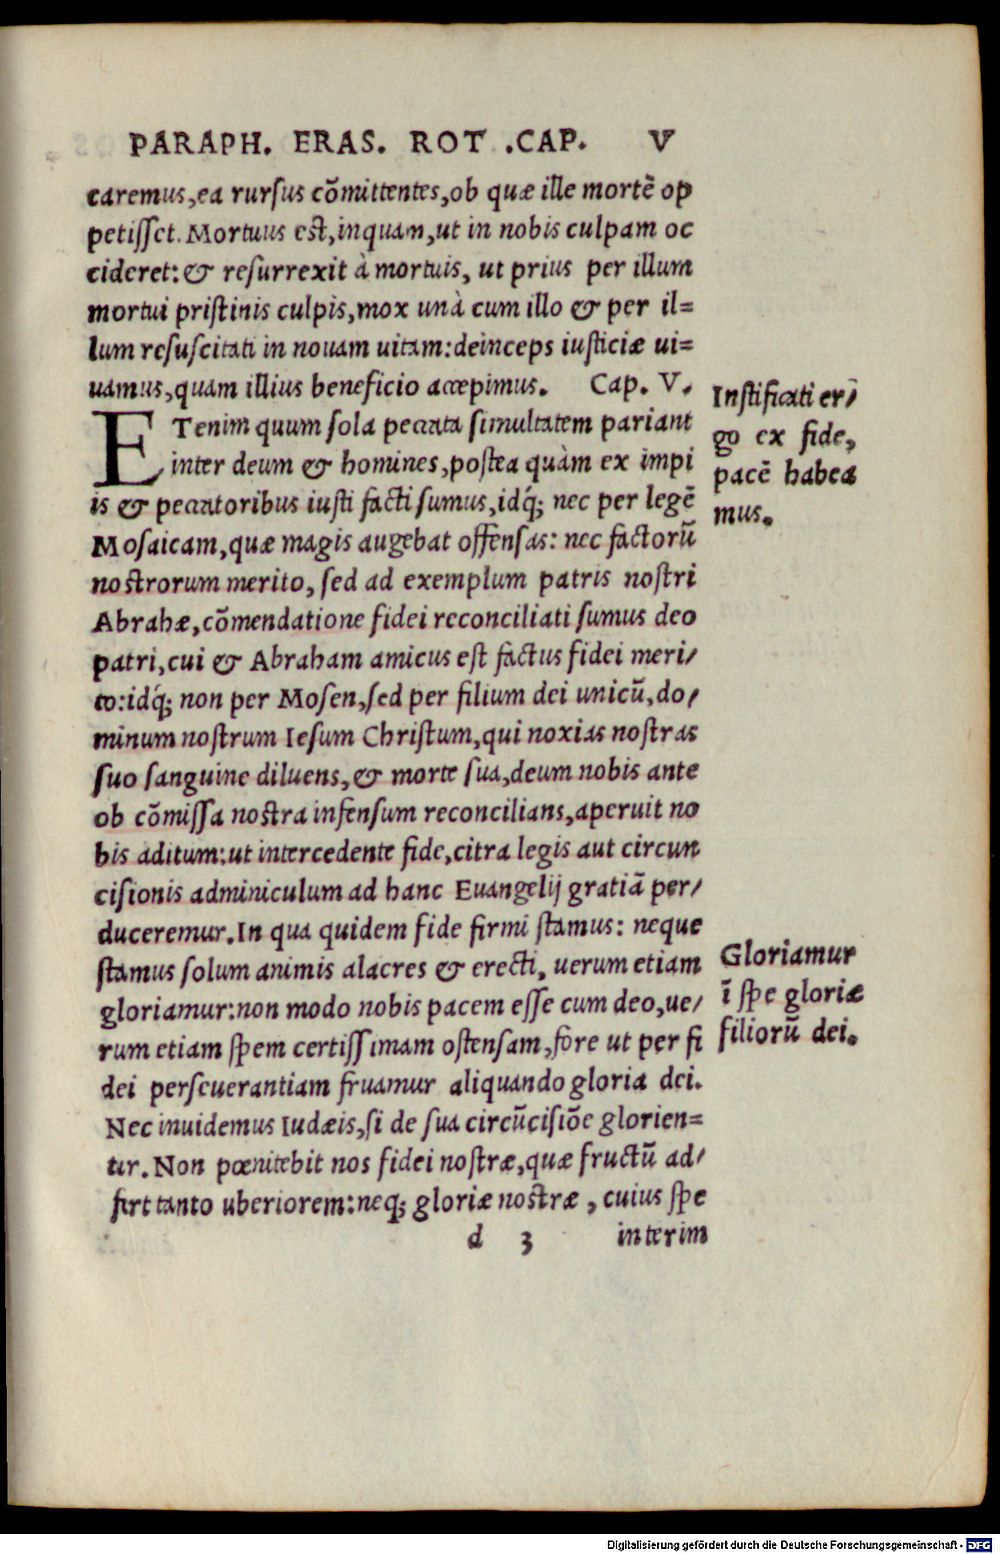 PARAPH. ERAS. ROT .CAP. V
caremus,ea rursus cõmittentes,ob quæ ille mortẽ op
petisset.Mortuus est,inquam,ut in nobis culpam oc
cideret:& resurrexit à mortuis, ut prius per illum
mortui pristinis culpis,mox unà cum illo & per il=
lum resuscitati in nouam uitam:deinceps iusticiæ ui=
uamus,quam illius beneficio accepimus. Cap. V.
ETenim quum sola peccata simultatem pariant
inter deum & homines,postea quàm ex impi
is & peccatoribus iusti facti sumus,idq́; nec per legẽ
Mosaicam,quæ magis augebat offensas: nec factorũ
nostrorum merito, sed ad exemplum patris nostri
Abrahæ,cõmendatione fidei reconciliati sumus deo
patri,cui & Abraham amicus est factus fidei meri/
to:idq́; non per Mosen,sed per filium dei unicũ,do/
minum nostrum Iesum Christum,qui noxias nostras
suo sanguine diluens,& morte sua,deum nobis ante
ob cõmissa nostra infensum reconcilians,aperuit no
bis aditum:ut intercedente fide,citra legis aut circun
cisionis adminiculum ad hanc Euangelij gratiã per/
duceremur.In qua quidem fide firmi stamus: neque
stamus solum animis alacres & erecti, uerum etiam
gloriamur:non modo nobis pacem esse cum deo,ue/
rum etiam spem certissimam ostensam,fore ut per fi
dei perseuerantiam fruamur aliquando gloria dei.
Nec inuidemus Iudæis,si de sua circũcisiõe glorien=
tur.Non pœnitebit nos fidei nostræ,quæ fructũ ad/
fert tanto uberiorem:neq; gloriæ nostræ , cuius spe
d 3 interim
Iustificati er/
go ex fide,
pacẽ habea
mus.
Gloriamur
ĩ spe gloriæ
filiorũ dei.
Digitalisierung gefördert durch die Deutsche Forschungsgemeinschaft - DFG